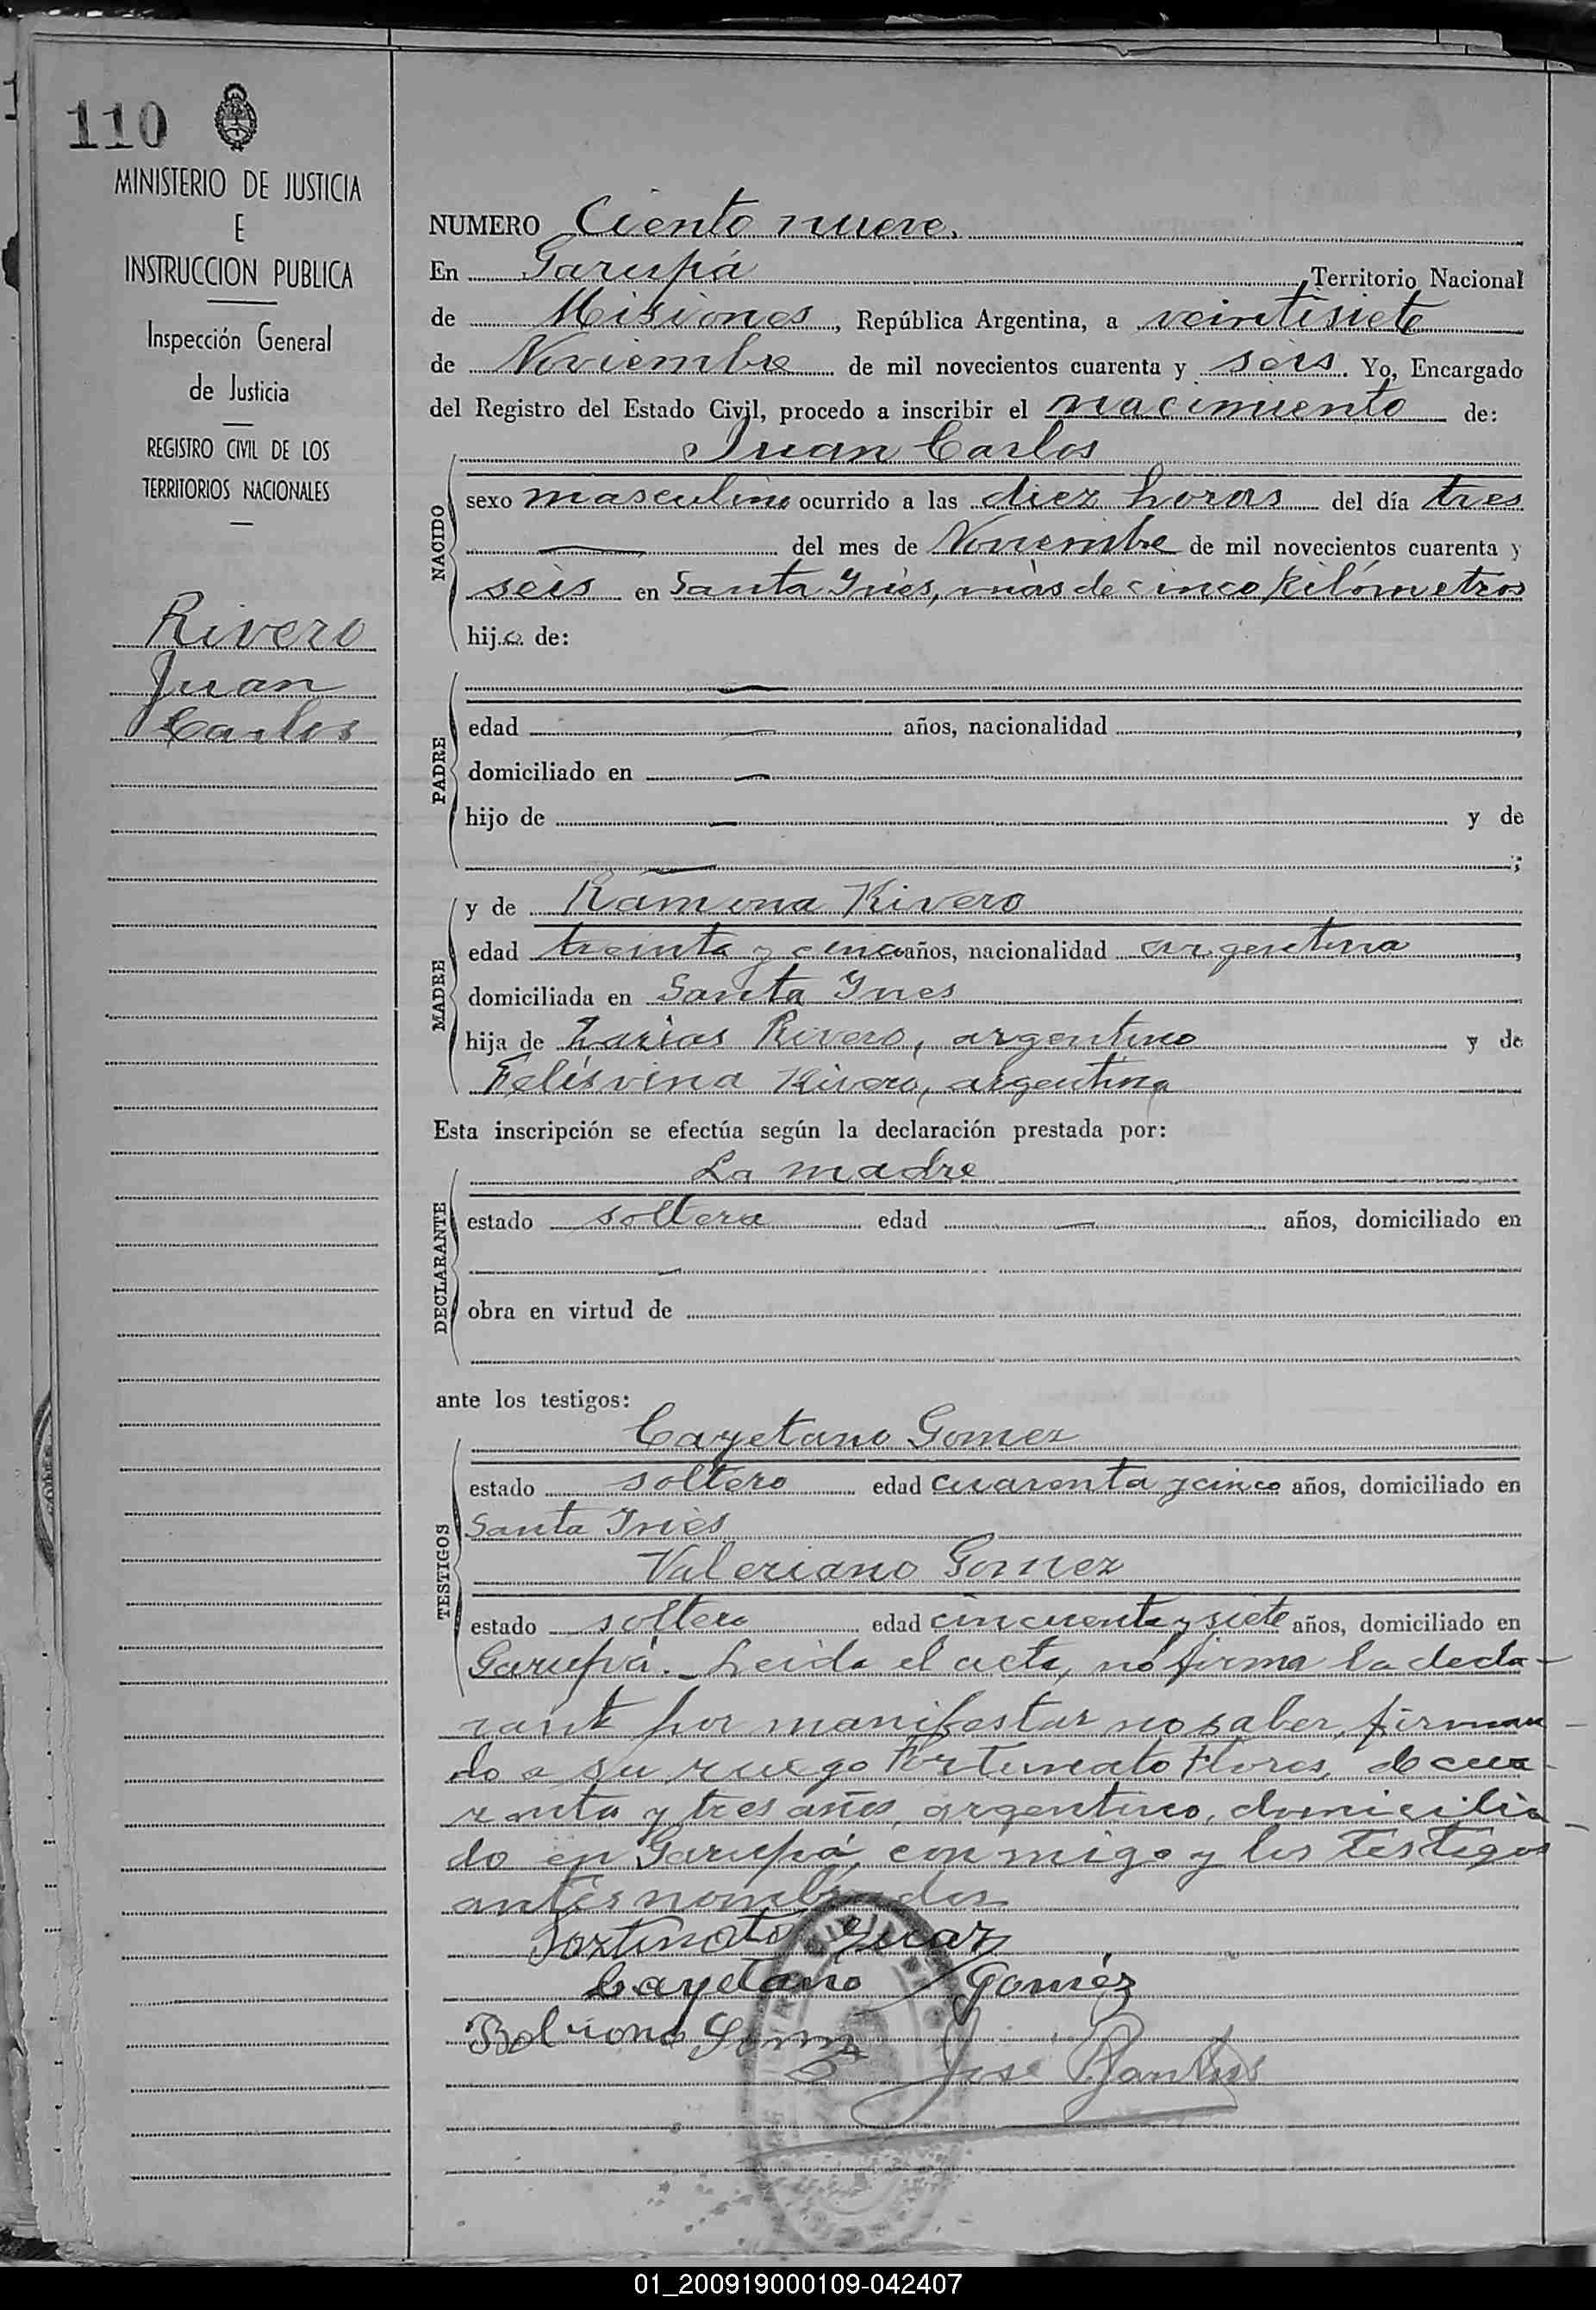 110
MINISTERIO DE JUSTICIA
E
INSTRUCCION PUBLICA
Inspección General
de Justicia
REGISTRO CIVIL DE LOS
TERRITORIOS NACIONALES
Rivero
Juan
Carlos
NUMERO Ciento nueve.
En Garupá Territorio Nacional
de Misiones, República Argentina, a veintisiete
de Noviembre de mil novecientos cuarenta y seis. Yo, Encargado
del Registro del Estado Civil, procedo a inscribir el nacimiento de:
Juan Carlos
NACIDO
sexo masculino ocurrido a las diez horas del día tres
del mes de Noviembre de mil novecientos cuarenta y
seis en Santa Ynés, más de cinco kilómetros
hijo de:
PADRE
edad años, nacionalidad ,
domiciliado en
hijo de y de
;
MADRE
y de Ramona Rivero
edad treinta y cinco años, nacionalidad argentina,
domiciliada en Santa Ynes
hija de Rivero, argentino y de
Felisvina Rivero, argentina
Esta inscripción se efectúa según la declaración prestada por:
La madre
DECLARANTE
estado soltera edad años, domiciliado en
obra en virtud de
ante los testigos:
Cayetano Gomez
TESTIGOS
estado soltero edad cuarenta y cinco años, domiciliado en
Santa Ynés
Valeriano Gomez
estado soltero edad cincuenta y siete años, domiciliado en
Garupá.- Leida el acta, no firma la decla-
rante por manifestar no saber, firman-
do a su ruego Fortunato Flores, de cua-
renta y tres años, argentino, domicilia-
do en Garupá, conmigo y los testigos
antes nombrados.
Fortunato
Cayetano Goméz
José
01_200919000109-042407